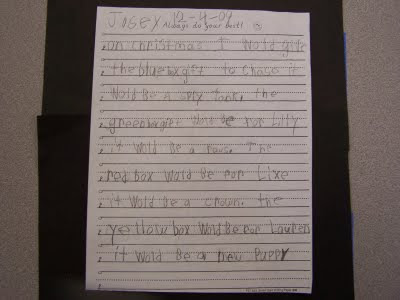 JOSEY 12-4-09
Always do your best!
on christmas I Wold give
the bluebox gift to Chase it
Wold Be a spiy Tank. the
greenboxgift Wold Be For Lilly
it Wold Be a The
red box Wold Be For Lixe
it Wold Be a crown. the
yellow box Wold Be For Lauren
it Wold Be a new Puppy